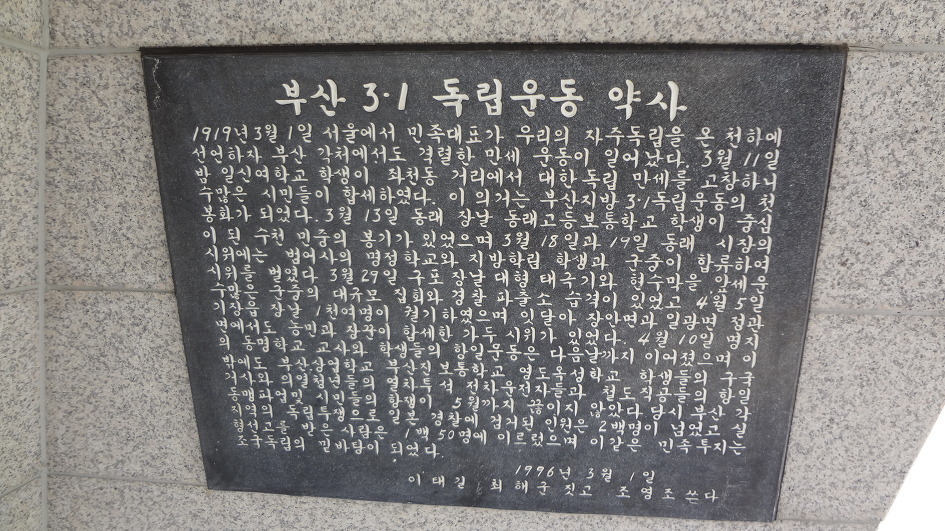 부산 3·1 독립운동 약사
1919년 3월 1일 서울에서 민족대표가 우리의 자주독립을 온 천하에
선언하자 부산 각처에서도 격렬한 만세 운동이 일어났다. 3월 11일
밤 일신여학교 학생이 좌천동 거리에서 대한독립 만세를 고창하니
수많은 시민들이 합세하였다. 이 의거는 부산지방 3·1독립운동의 첫
봉화가 되었다. 3월 13일 동래 장날 동래고등보통학교 학생이 중심
이 된 수천 민중의 봉기가 있었으며 3월 18일과 19일 동래 시장의
시위에는 범어사의 명정학교와 지방학림 학생과 군중이 합류하여
시위를 벌였다. 3월 29일 구포 장날 대형 태극기와 현수막을 앞세운
수많은 민중의 대규모 집회와 경찰 파출소 습격이 있었고 4월 5일
기장읍 장날 1천여명이 궐기하였으며 잇달아 장안면과 일광면 정관
면에서도 농민과 장꾼이 합세한 가두 시위가 있었다. 4월 10일 명지
의 동명학교 교사와 학생들의 항일운동은 다음날까지 이어졌으며 이
학생들의
전차 운전자들과 철도 직공들의
5월까지 끊이지 않았다. 당시 부산 각
경찰에 검거된 인원은 2백명이 넘었고 실
형을 선고 받은 사람은 1백 50명에 이르렀으며 이같은 민족 투지는
조국 독립의 밑바탕이 되었다.
1996년 3월 1일
이태길 최해군 짓고 조영조 쓴다